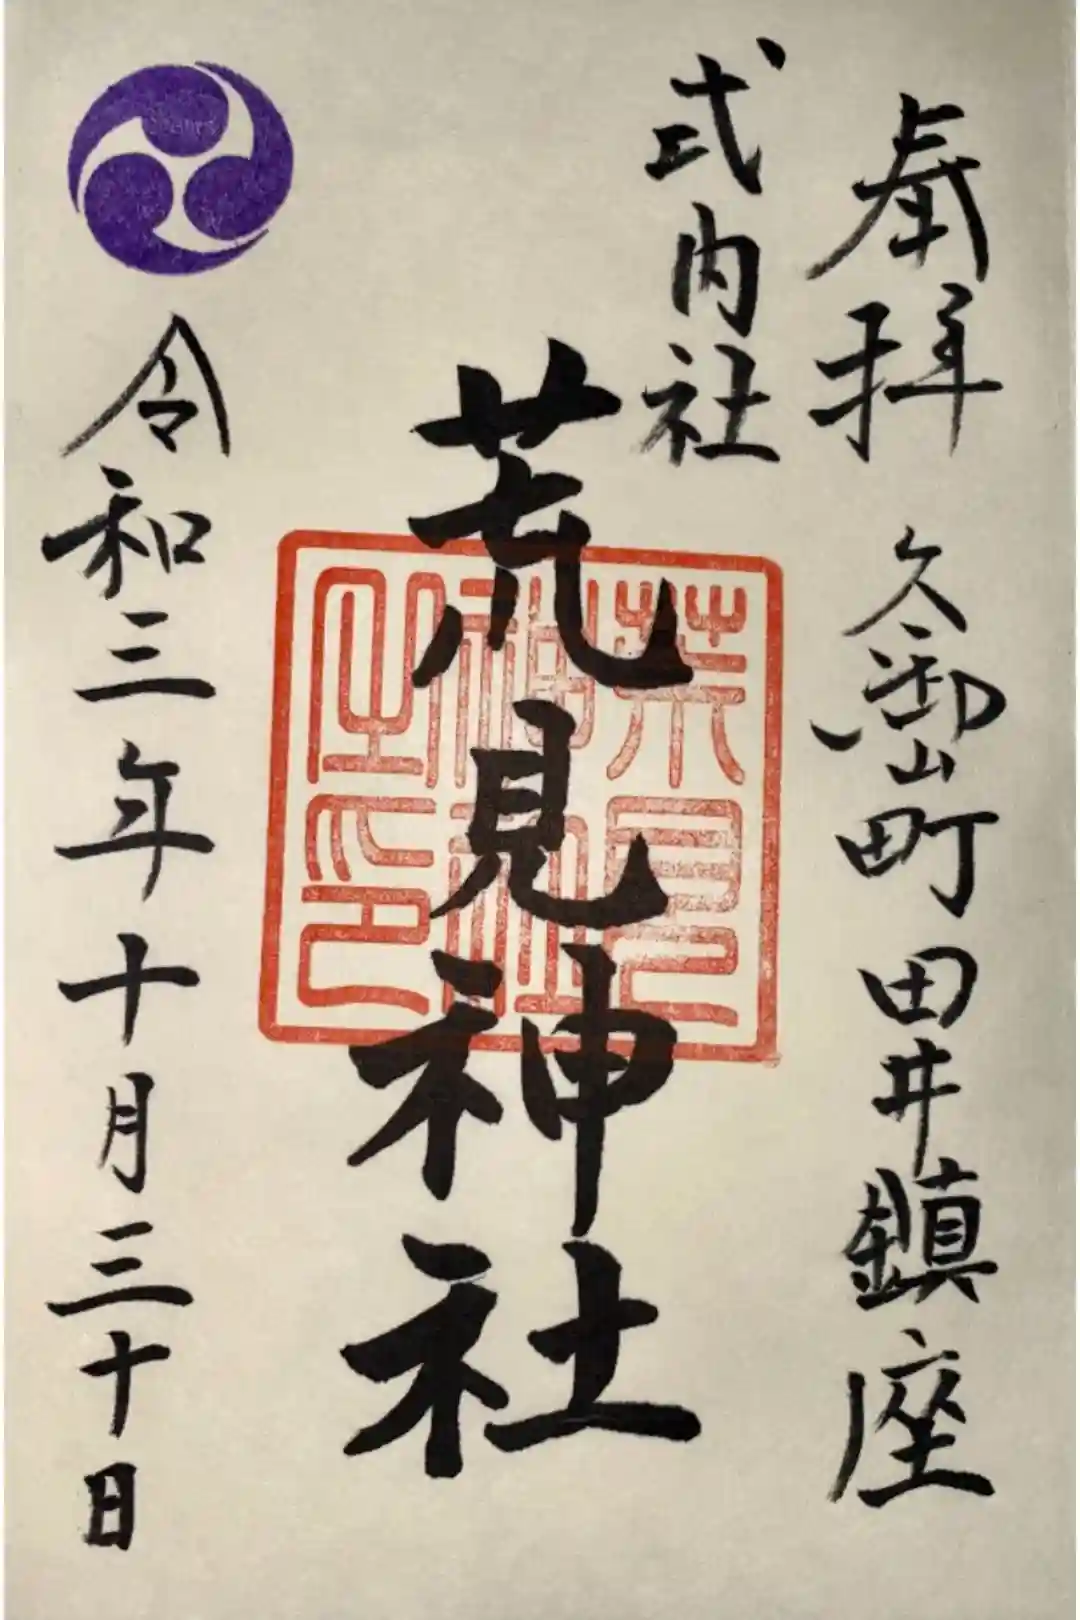 奉拝 久御山町田井鎮座
式内社
荒見神社
荒見神社之印
令和三年十月三十日